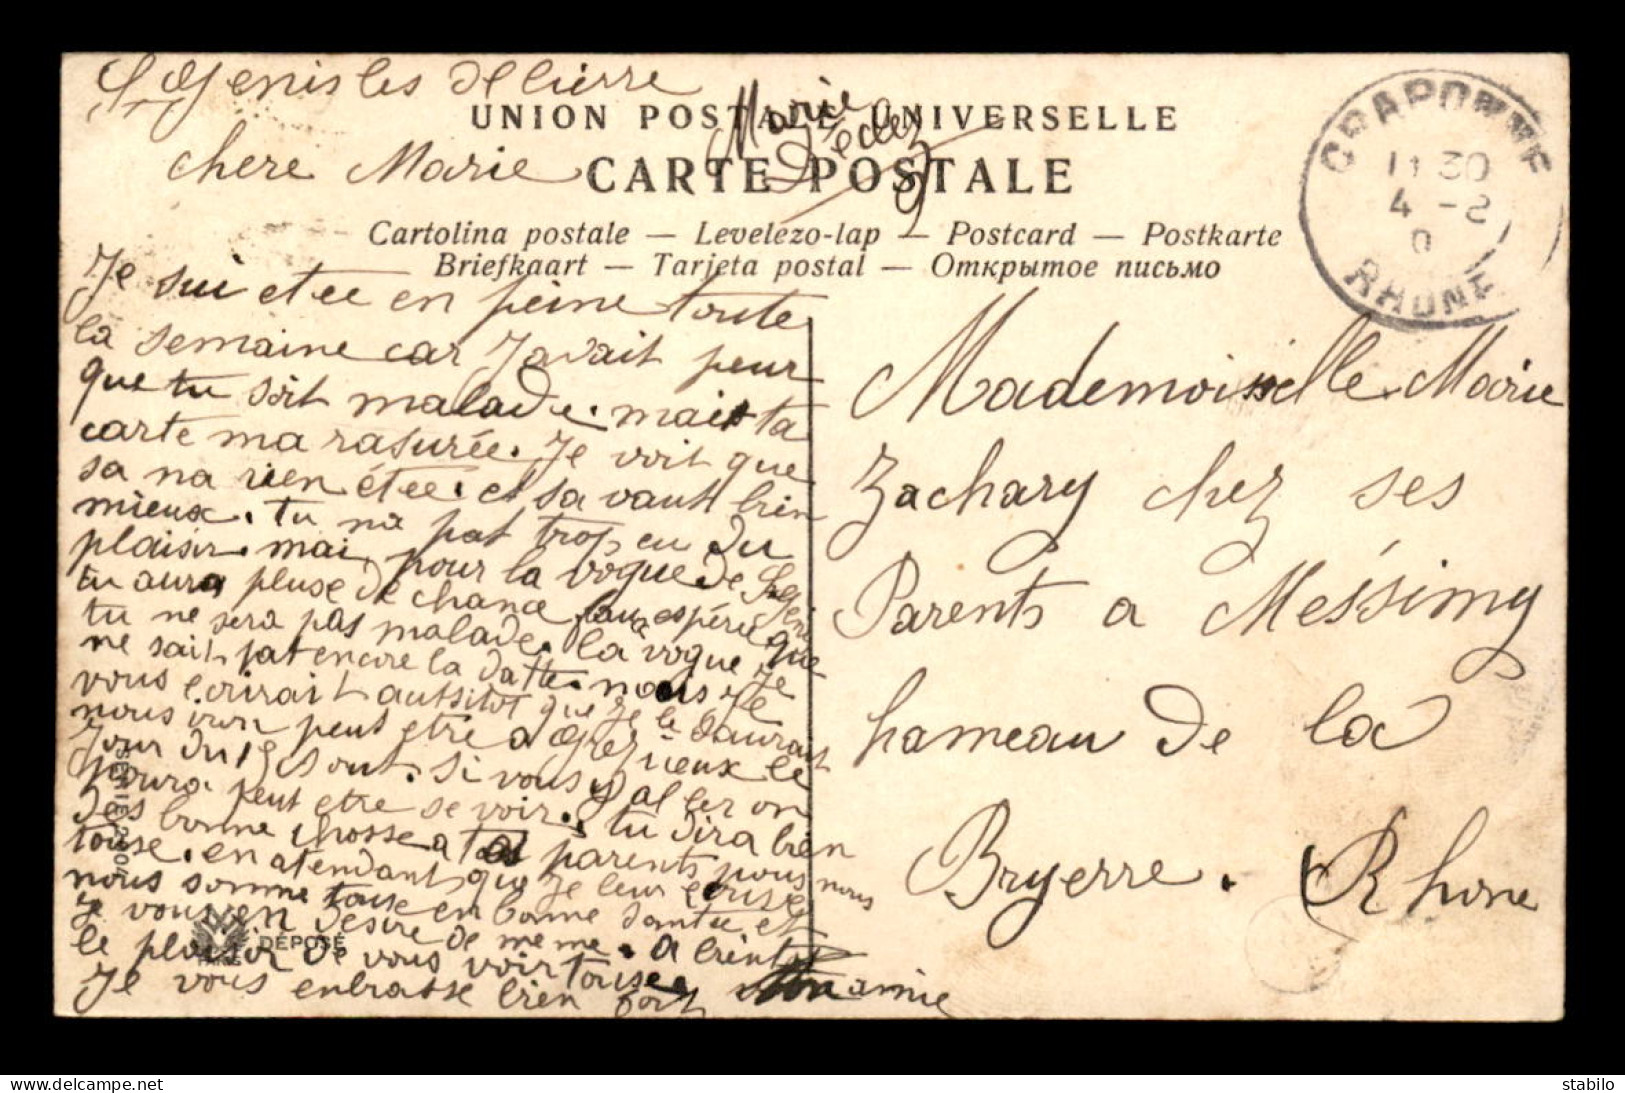 St Genis les Ollière
UNION POSTALE UNIVERSELLE
chere Marie
CARTE POSTALE
Marie
Cartolina postale — Levelezo-lap — Postcard — Postkarte
Briefkaart — Tarjeta postal — Открытое письмо
CRAPONNE
11 30
4 -2
0
RHONE
Je sui etee en peine toute
la semaine car J'avait peur
que tu soit malade. mais ta
carte ma rasurée. Je voit que
sa na rien étee. et sa vaut bien
mieux. tu na pat trop eu du
plaisir. mai pour la vogue de St Geni
tu aura pluse de chance faux espérée que
tu ne sera pas malade. la vogue Je
ne sait pat encore la datte. mais Je
vous ecrirait autsitot que Je le saurait
nous iron peut etre a Grezieux le
Jour du 15 out. si vous y aller on
poura peut etre se voir. tu dira bien
des bonne chosse a tes parents pour nous
touse. en atendant que Je leur ecrise
nous somme touse en bonne santee et
Je vous en desire de meme. a bientot
le plaisir de vous voir touse.
Je vous enbrasse bien fort amie
Mademoiselle Marie
Zachary chez ses
Parents a Messimy
hameau de la
Bryerre. Rhone
SERIE
DÉPOSÉ
https://www.delcampe.net
stabilo